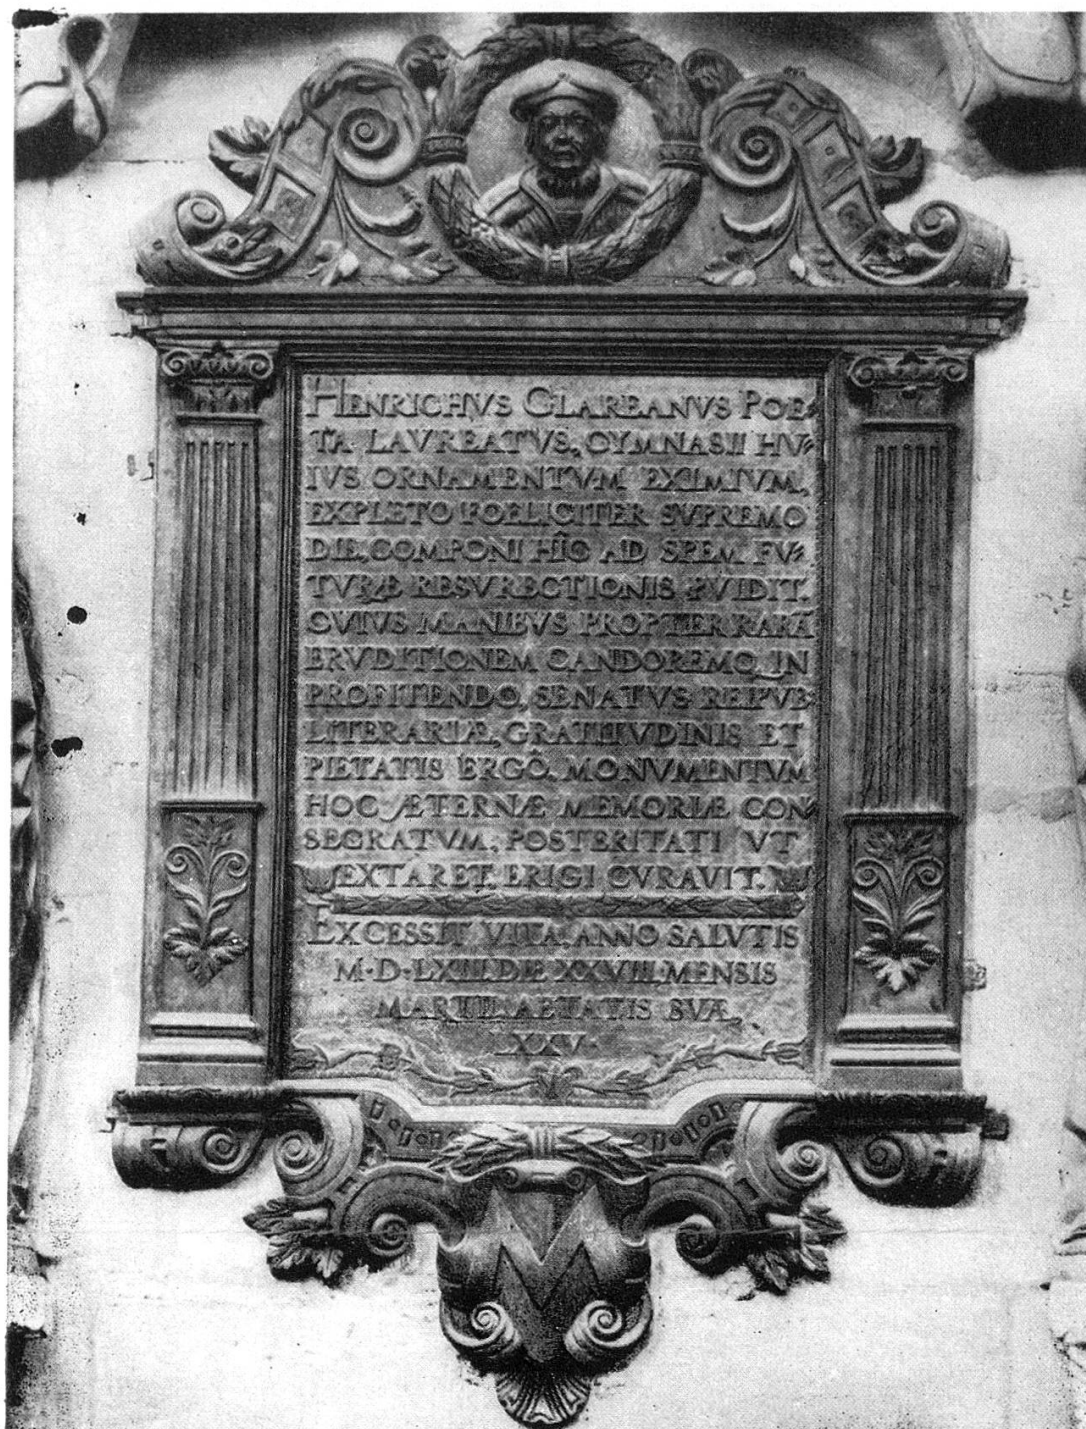 HENRICHVS GLAREANVS POE⸗
TA LAVREATVS, GYMNASII HV⸗
IVS ORNAMENTVM EXIMIVM,
EXPLETO FOELICITER SVPREMO
DIE, COMPONI HÎC AD SPEM FV⸗
TVRÆ RESVRECTIONIS PVIDIT.
CVIVS MANIBVS PROPTER RARÃ
ERVDITIONEM CANDOREMQ, IN
PROFITENDO, SENATVS REIPVB:
LITERARIÆ, GRATITVDINIS ET
PIETATIS ERGÔ, MONVMENTVM
HOC ÆTERNÆ MEMORIÆ CON⸗
SECRATVM, POSTERITATI VT
EXTARET, ERIGI CVRAVIT.
EXCESSIT VITA, ANNO SALVTIS
M·D·LXIII. DIE XXVIII. MENSIS
MARTII. AETATIS SVÆ,
XXV·